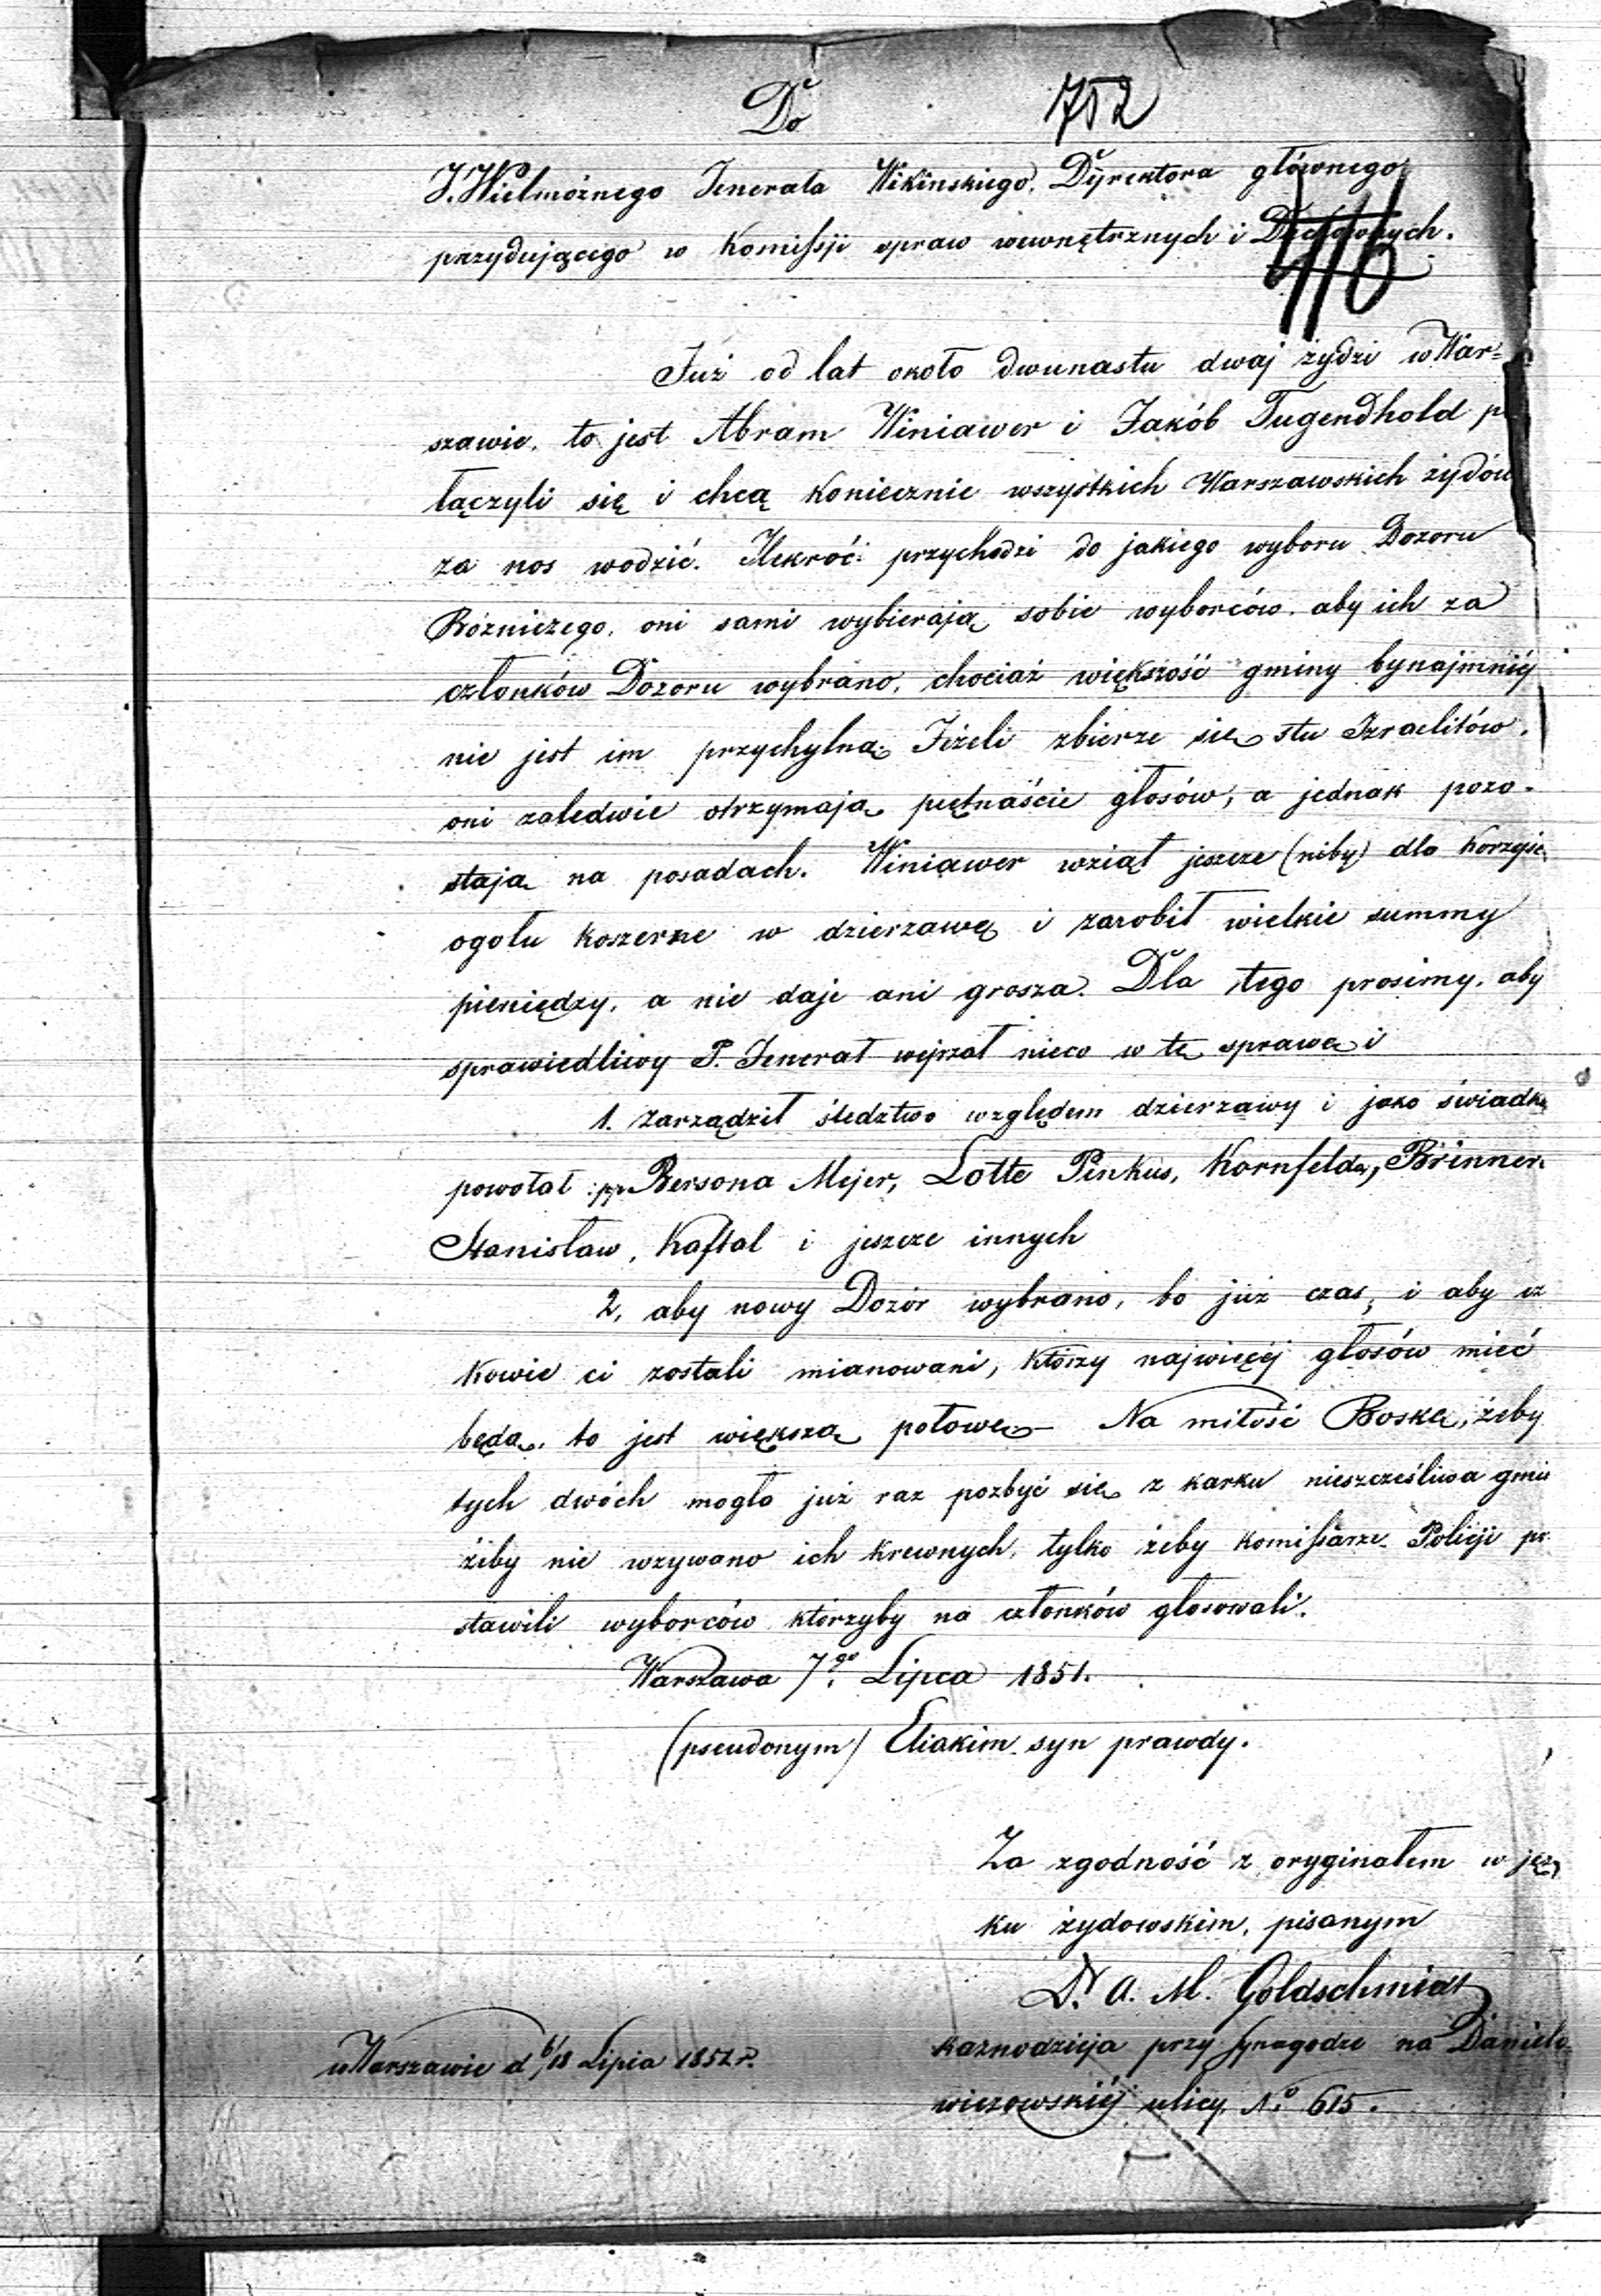 Do 752
J. Wielmożnego Jenerała Wikinskiego, Dyrektora głównego
przydującego w Komissji spraw wewnętrznych i Duchownych.
416
Już od lat około dwunastu dwaj żydzi w War=
szawie, to jest Abram Winiawer i Jakób Tugendhold
łączyli się i chcą koniecznie wszystkich Warszawskich żydów
za nos wodzić. Ilekroć przychodzi do jakiego wyboru Dozoru
Bożniczego, oni sami wybierają sobie wyborców, aby ich za
członków Dozoru wybrano, chociaż większość gminy bynajmniéj
nie jest im przychylną. Jeżeli zbierze się stu Izraelitów,
oni zaledwie otrzymają piętnaście głosów, a jednak pozo-
stają na posadach. Winiawer wziął jeszcze (niby) dla korzyści
ogołu koszerne w dzierzawę i zarobił wielkie summy
pieniędzy, a nie daje ani grosza. Dla tego prosimy, aby
sprawiedliwy P. Jenerał wejrzał nieco w tę sprawę i
1. Zarządził śledztwo względem dzierzawy i jako świadków
powołał pp. Bersona Mejer, Lotte Pinkus, Kornfelda, Brinner
Stanisław, Kaftal i jeszcze innych
2, aby nowy Dozór wybrano, bo już czas, i aby cz
kowie ci zostali mianowani, którzy najwięcéj głosów mieć
będą, to jest większą połowę - Na miłość Boską, żeby
tych dwóch mogła już raz pozbyć się z karku nieszczęśliwa gmi
żeby nie wzywano ich krewnych, tylko żeby komissarze Policji
stawili wyborców którzyby na członków głosowali.
Warszawa 7go Lipca 1851.
(pseudonym) Eliakim syn prawdy.
Za zgodność z oryginałem w języ
ku żydowskim, pisanym
Dr. A. M. Goldschmidt
kaznodzieja przy Synagodze na Daniło
wiczowskiéj ulicy No 615.
w Warszawie d 6/18 Lipia 1851 r.